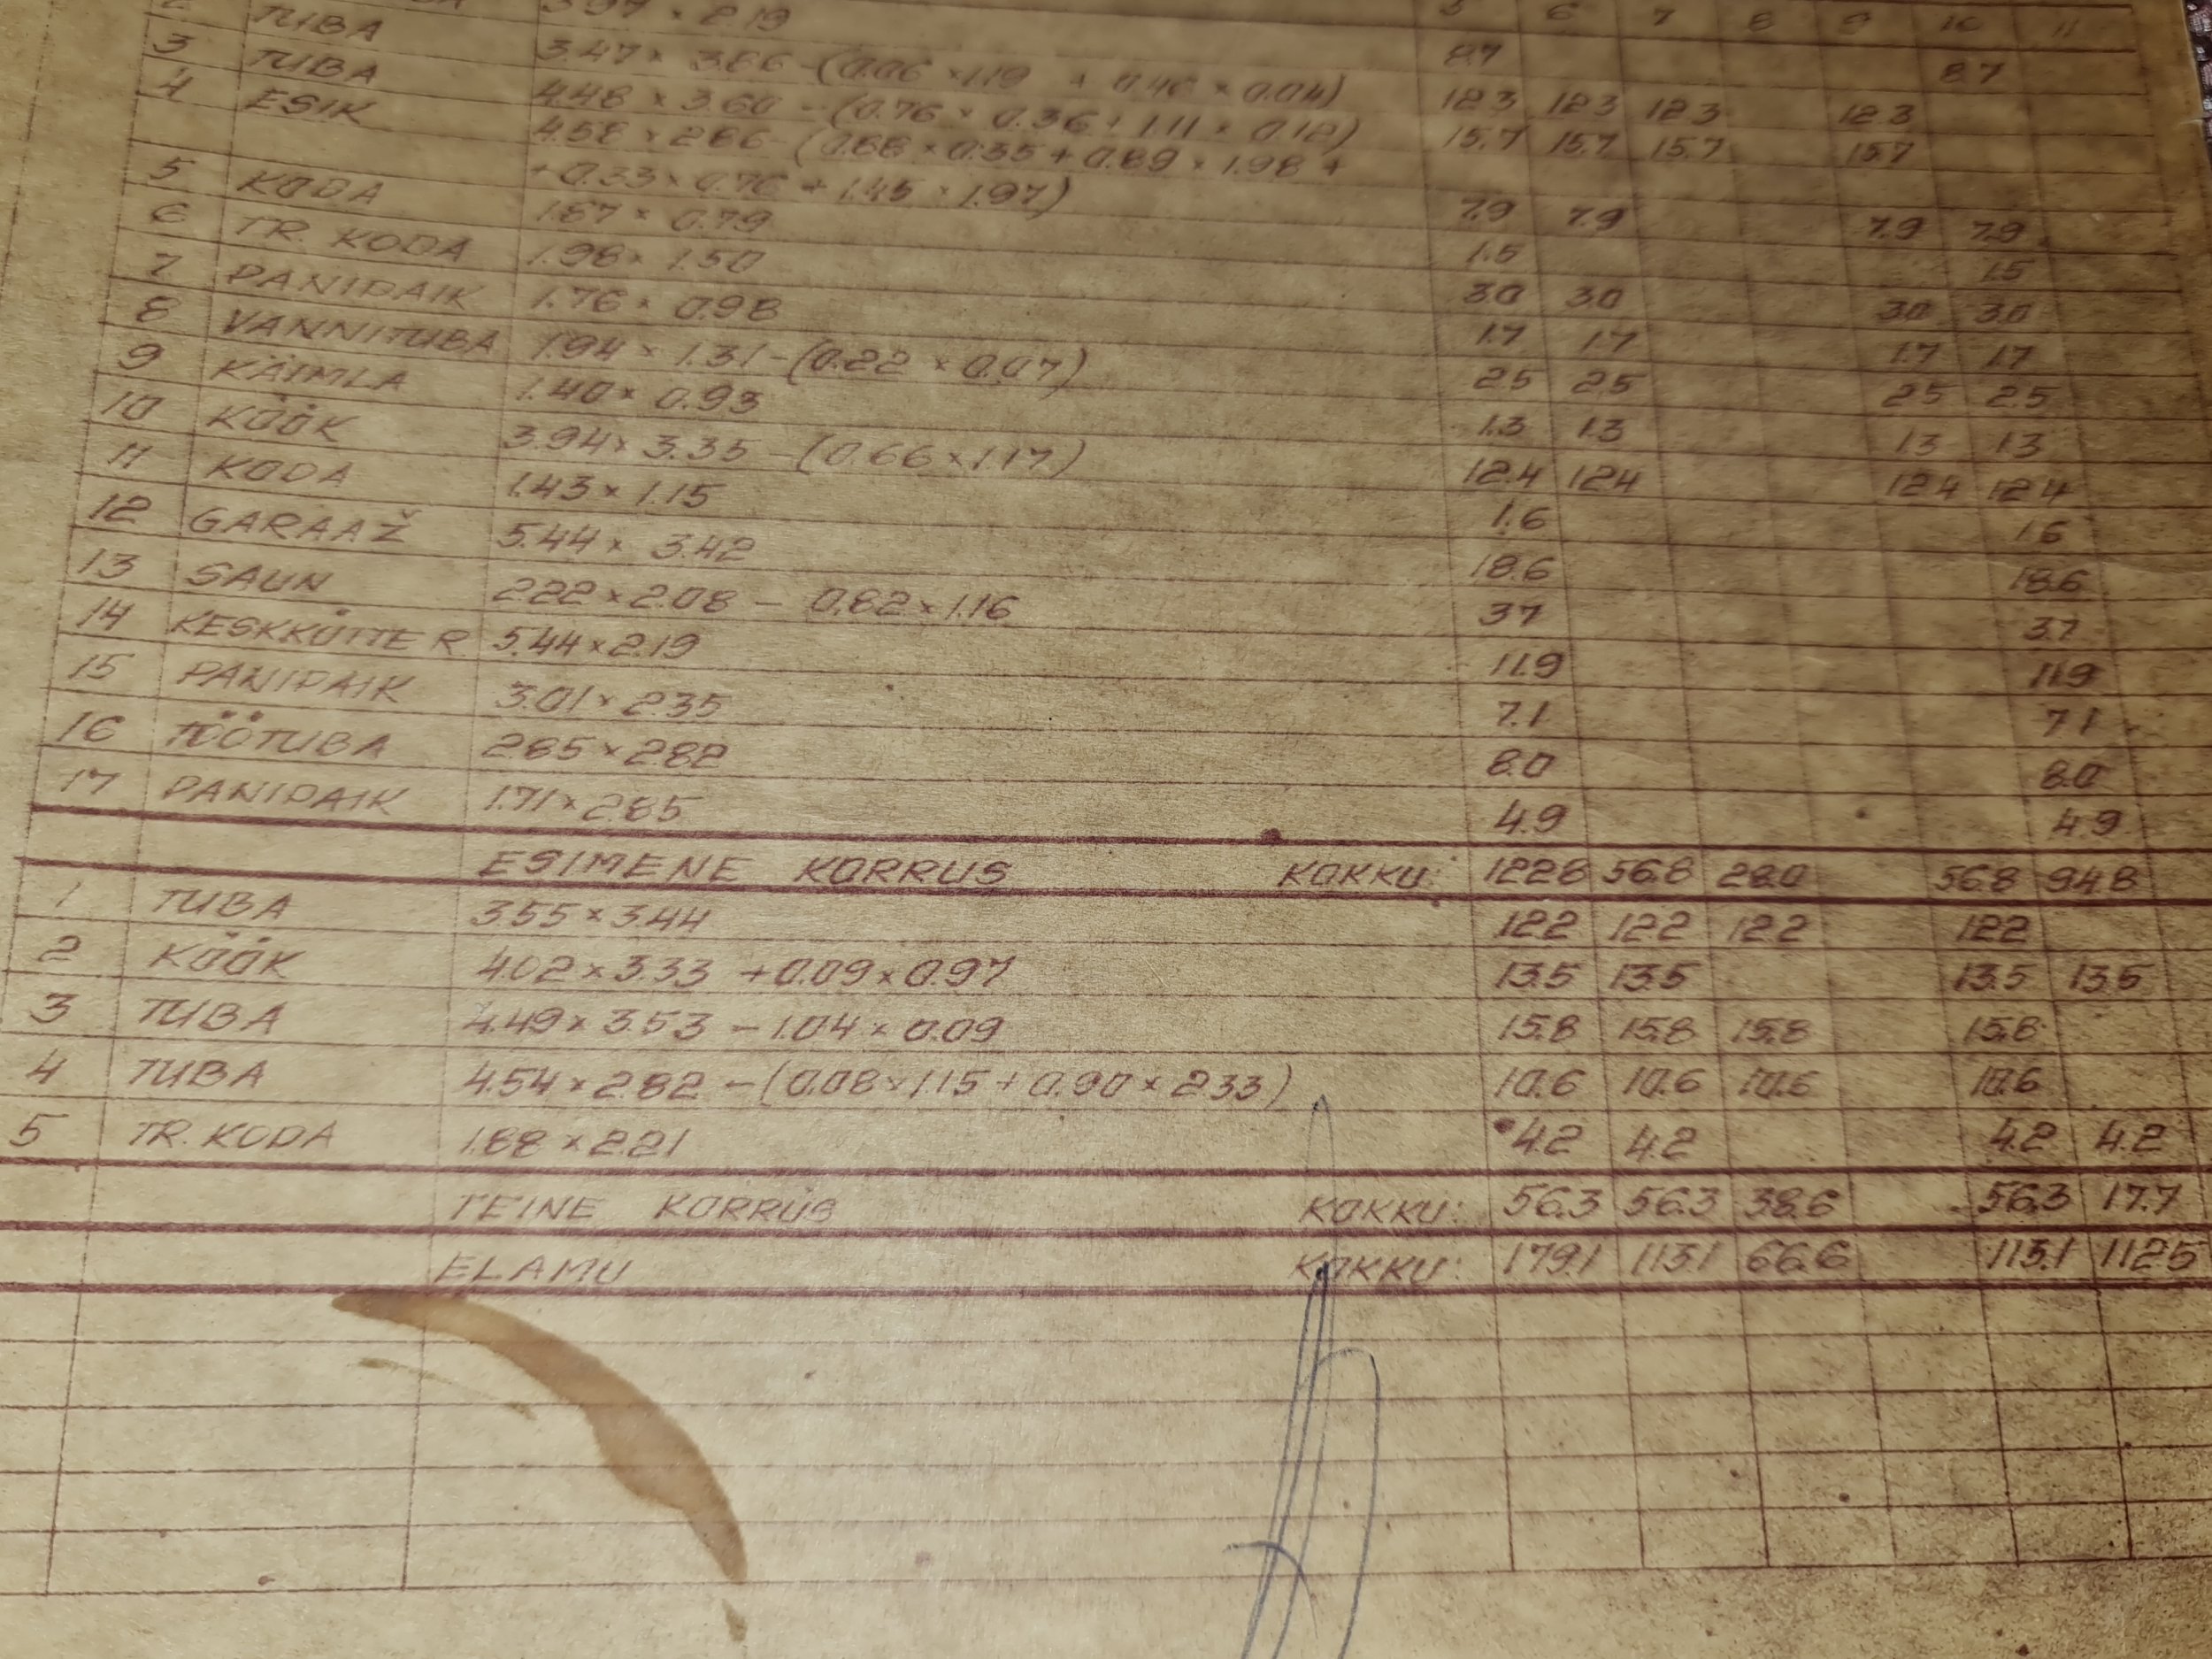 3.97 × 2.19 5 6 7 8 9 10 11
2 TUBA 3.47 × 3.86 - (0.06 × 1.19 + 0.46 × 0.04) 8.7 8.7
3 TUBA 4.48 × 3.60 - (0.76 × 0.36 + 1.11 × 0.12) 12.3 12.3 12.3 12.3
4 ESIK 4.58 × 2.86 - (0.88 × 0.35 + 0.89 × 1.98 + 15.7 15.7 15.7 15.7
+ 0.33 × 0.76 + 1.45 × 1.97) 7.9 7.9 7.9 7.9
5 KODA 1.87 × 0.79 1.5 1.5
6 TR. KODA 1.98 × 1.50 3.0 3.0 3.0 3.0
7 PANIPAIK 1.76 × 0.98 1.7 1.7 1.7 1.7
8 VANNITUBA 1.94 × 1.31 - (0.22 × 0.07) 2.5 2.5 2.5 2.5
9 KÄIMLA 1.40 × 0.93 1.3 1.3 1.3 1.3
10 KÖÖK 3.94 × 3.35 - (0.66 × 1.17) 12.4 12.4 12.4 12.4
11 KODA 1.43 × 1.15 1.6 1.6
12 GARAAŽ 5.44 × 3.42 18.6 18.6
13 SAUN 2.22 × 2.08 - 0.82 × 1.16 3.7 3.7
14 KESKKÜTTE R 5.44 × 2.19 11.9 11.9
15 PANIPAIK 3.01 × 2.35 7.1 7.1
16 TÖÖTUBA 2.85 × 2.82 8.0 8.0
17 PANIPAIK 1.71 × 2.85 4.9 4.9
ESIMENE KORRUS KOKKU: 122.8 56.8 28.0 56.8 94.8
1 TUBA 3.55 × 3.44 12.2 12.2 12.2 12.2
2 KÖÖK 4.02 × 3.33 + 0.09 × 0.97 13.5 13.5 13.5 13.5
3 TUBA 4.49 × 3.53 - 1.04 × 0.09 15.8 15.8 15.8 15.8
4 TUBA 4.54 × 2.82 - (0.08 × 1.15 + 0.90 × 2.33) 10.6 10.6 10.6 10.6
5 TR. KODA 1.88 × 2.21 4.2 4.2 4.2 4.2
TEINE KORRUS KOKKU: 56.3 56.3 38.6 56.3 17.7
ELAMU KOKKU: 179.1 113.1 66.6 113.1 112.5